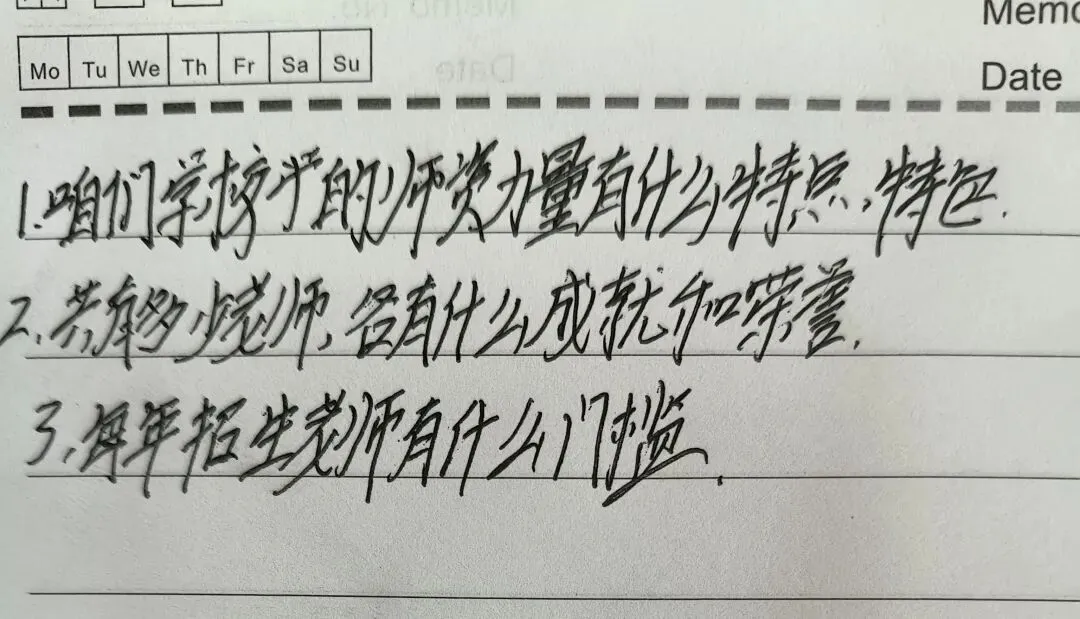 Memo
Date
Mo Tu We Th Fr Sa Su
1.咱们学校的师资力量有什么特点,特色.
2.共有多少老师,各有什么成就和荣誉.
3.每年招生老师有什么门槛.